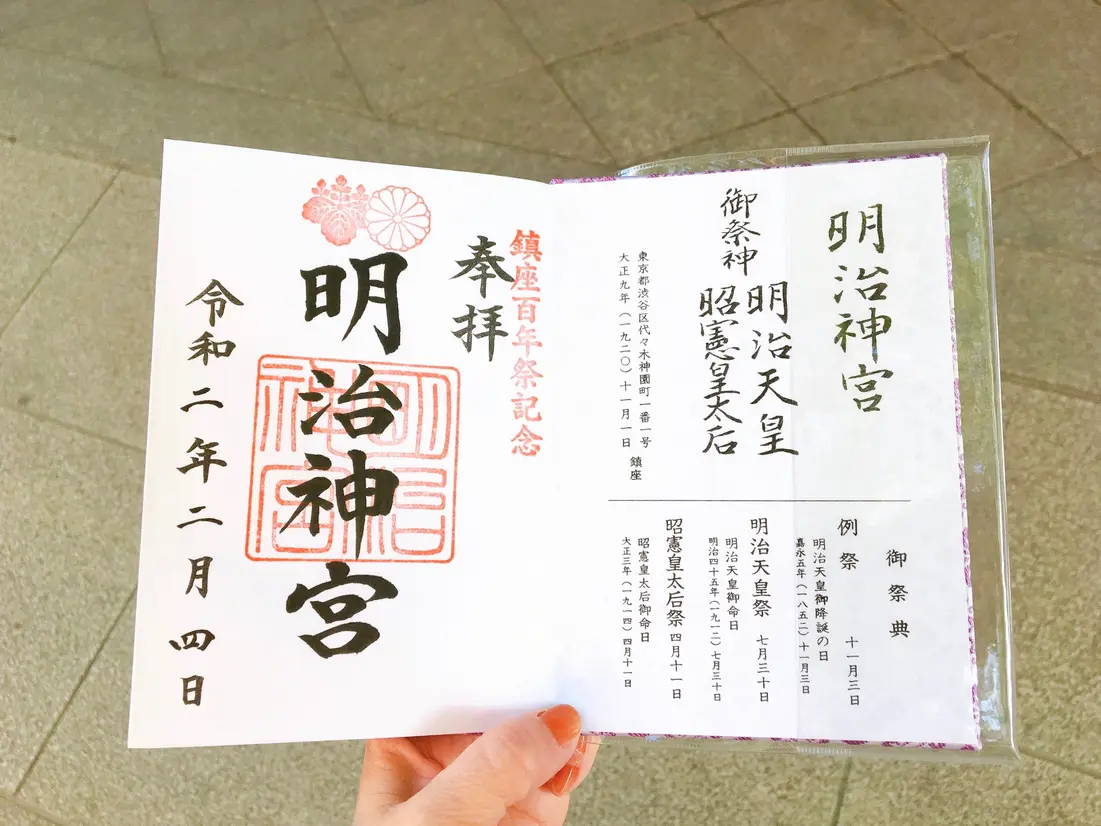 明治神宮
御祭神
明治天皇
昭憲皇太后
東京都渋谷区代々木神園町一番一号
大正九年(一九二〇)十一月一日 鎮座
御祭典
例祭 十一月三日
明治天皇御降誕の日
嘉永五年(一八五二)十一月三日
明治天皇祭 七月三十日
明治天皇御命日
明治四十五年(一九一二)七月三十日
昭憲皇太后祭 四月十一日
昭憲皇太后御命日
大正三年(一九一四)四月十一日
鎮座百年祭記念
奉拝
明治神宮
明治
神宮
令和二年二月四日